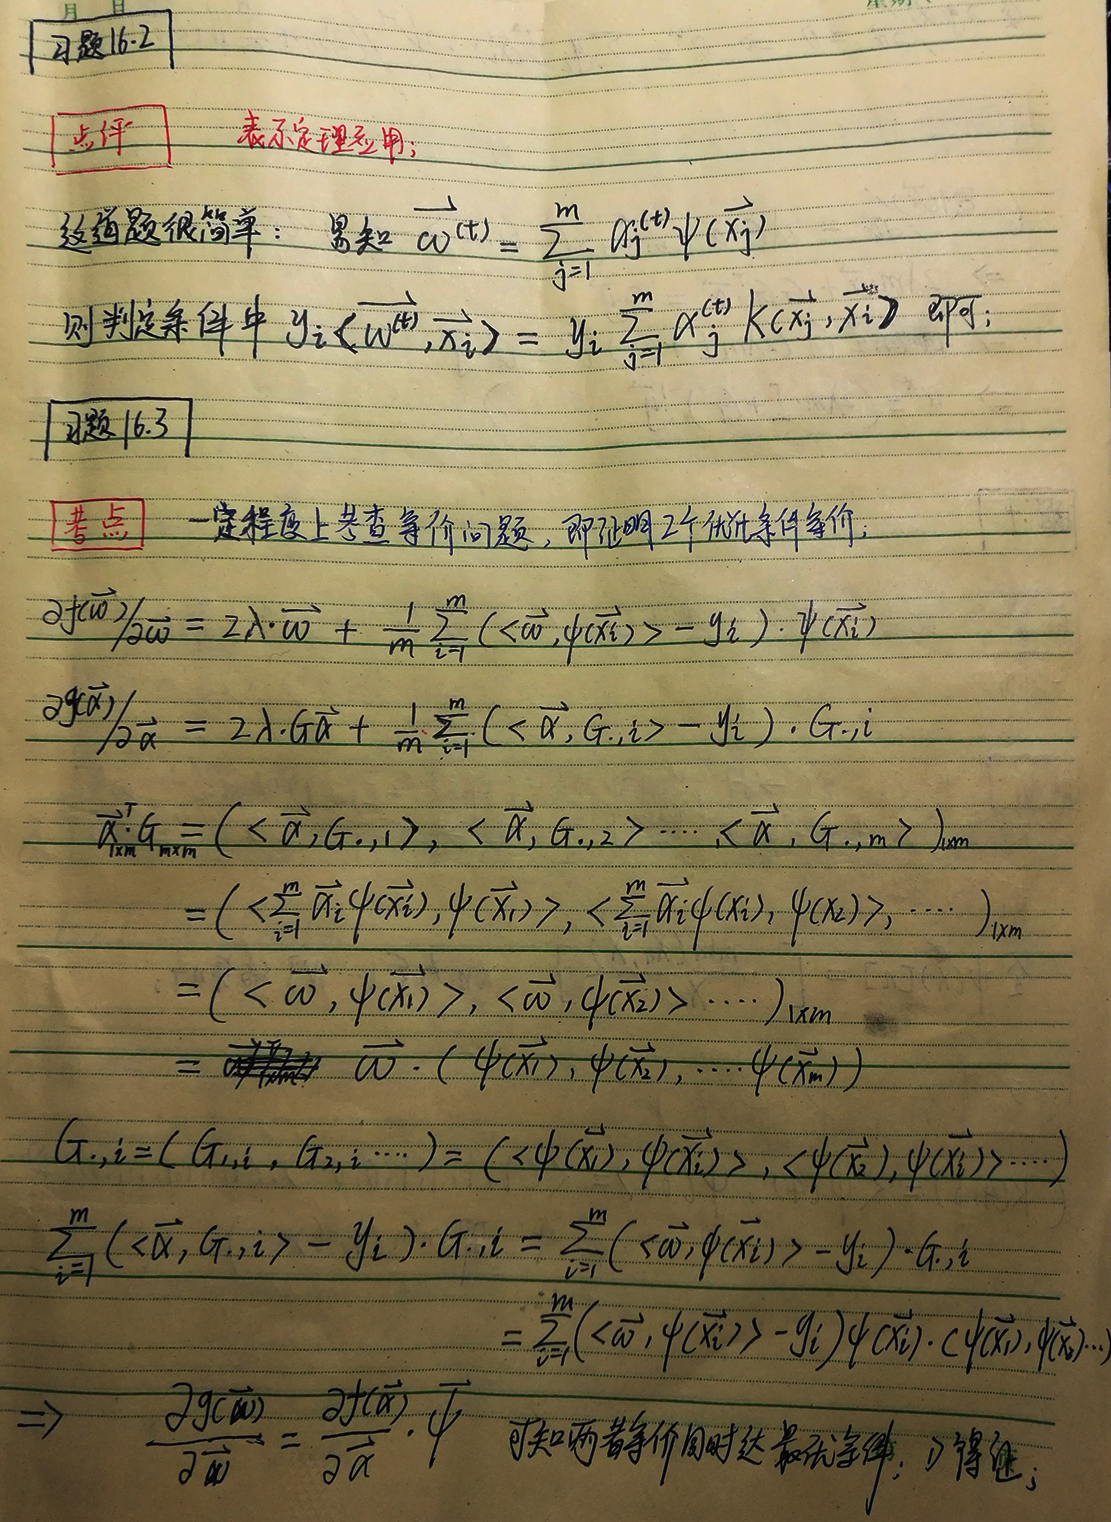 月 日 星期
习题16.2
点评 表示定理应用;
这道题很简单: 易知 $\vec{w}^{(t)} = \sum_{j=1}^{m} \alpha_j^{(t)} \psi(\vec{x_j})$
则判定条件中 $y_i \langle \vec{w^{(t)}}, \vec{x_i} \rangle = y_i \sum_{j=1}^{m} \alpha_j^{(t)} K(\vec{x_j}, \vec{x_i})$ 即可;
习题16.3
考点 一定程度上考查等价问题, 即证明2个优化条件等价;
$\partial f(\vec{w}) / \partial \vec{w} = 2\lambda \cdot \vec{w} + \frac{1}{m} \sum_{i=1}^{m} (\langle \vec{w}, \psi(\vec{x_i}) \rangle - y_i) \cdot \psi(\vec{x_i})$
$\partial g(\vec{\alpha}) / \partial \vec{\alpha} = 2\lambda \cdot G\vec{\alpha} + \frac{1}{m} \sum_{i=1}^{m} (\langle \vec{\alpha}, G_{\cdot,i} \rangle - y_i) \cdot G_{\cdot,i}$
$\vec{\alpha}^T_{1×m} \cdot G_{m×m} = (\langle \vec{\alpha}, G_{\cdot,1} \rangle, \langle \vec{\alpha}, G_{\cdot,2} \rangle \cdots \langle \vec{\alpha}, G_{\cdot,m} \rangle)_{1×m}$
$= (\langle \sum_{i=1}^{m} \vec{\alpha_i} \psi(\vec{x_i}), \psi(\vec{x_1}) \rangle, \langle \sum_{i=1}^{m} \vec{\alpha_i} \psi(x_i), \psi(x_2) \rangle, \cdots)_{1×m}$
$= (\langle \vec{w}, \psi(\vec{x_1}) \rangle, \langle \vec{w}, \psi(\vec{x_2}) \rangle \cdots)_{1×m}$
$= \vec{w} \cdot (\psi(\vec{x_1}), \psi(\vec{x_2}), \cdots \psi(\vec{x_m}))$
$G_{\cdot,i} = (G_{1,i}, G_{2,i} \cdots) = (\langle \psi(\vec{x_1}), \psi(\vec{x_i}) \rangle, \langle \psi(\vec{x_2}), \psi(\vec{x_i}) \rangle \cdots)$
$\sum_{i=1}^{m} (\langle \vec{\alpha}, G_{\cdot,i} \rangle - y_i) \cdot G_{\cdot,i} = \sum_{i=1}^{m} (\langle \vec{w}, \psi(\vec{x_i}) \rangle - y_i) \cdot G_{\cdot,i}$
$= \sum_{i=1}^{m} (\langle \vec{w}, \psi(\vec{x_i}) \rangle - y_i) \psi(\vec{x_i}) \cdot (\psi(\vec{x_1}), \psi(\vec{x_2}) \cdots)$
$\Rightarrow \frac{\partial g(\vec{w})}{\partial \vec{w}} = \frac{\partial f(\vec{\alpha})}{\partial \vec{\alpha}} \cdot \vec{\psi}$ 可知两者等价同时达最优条件; 得证;